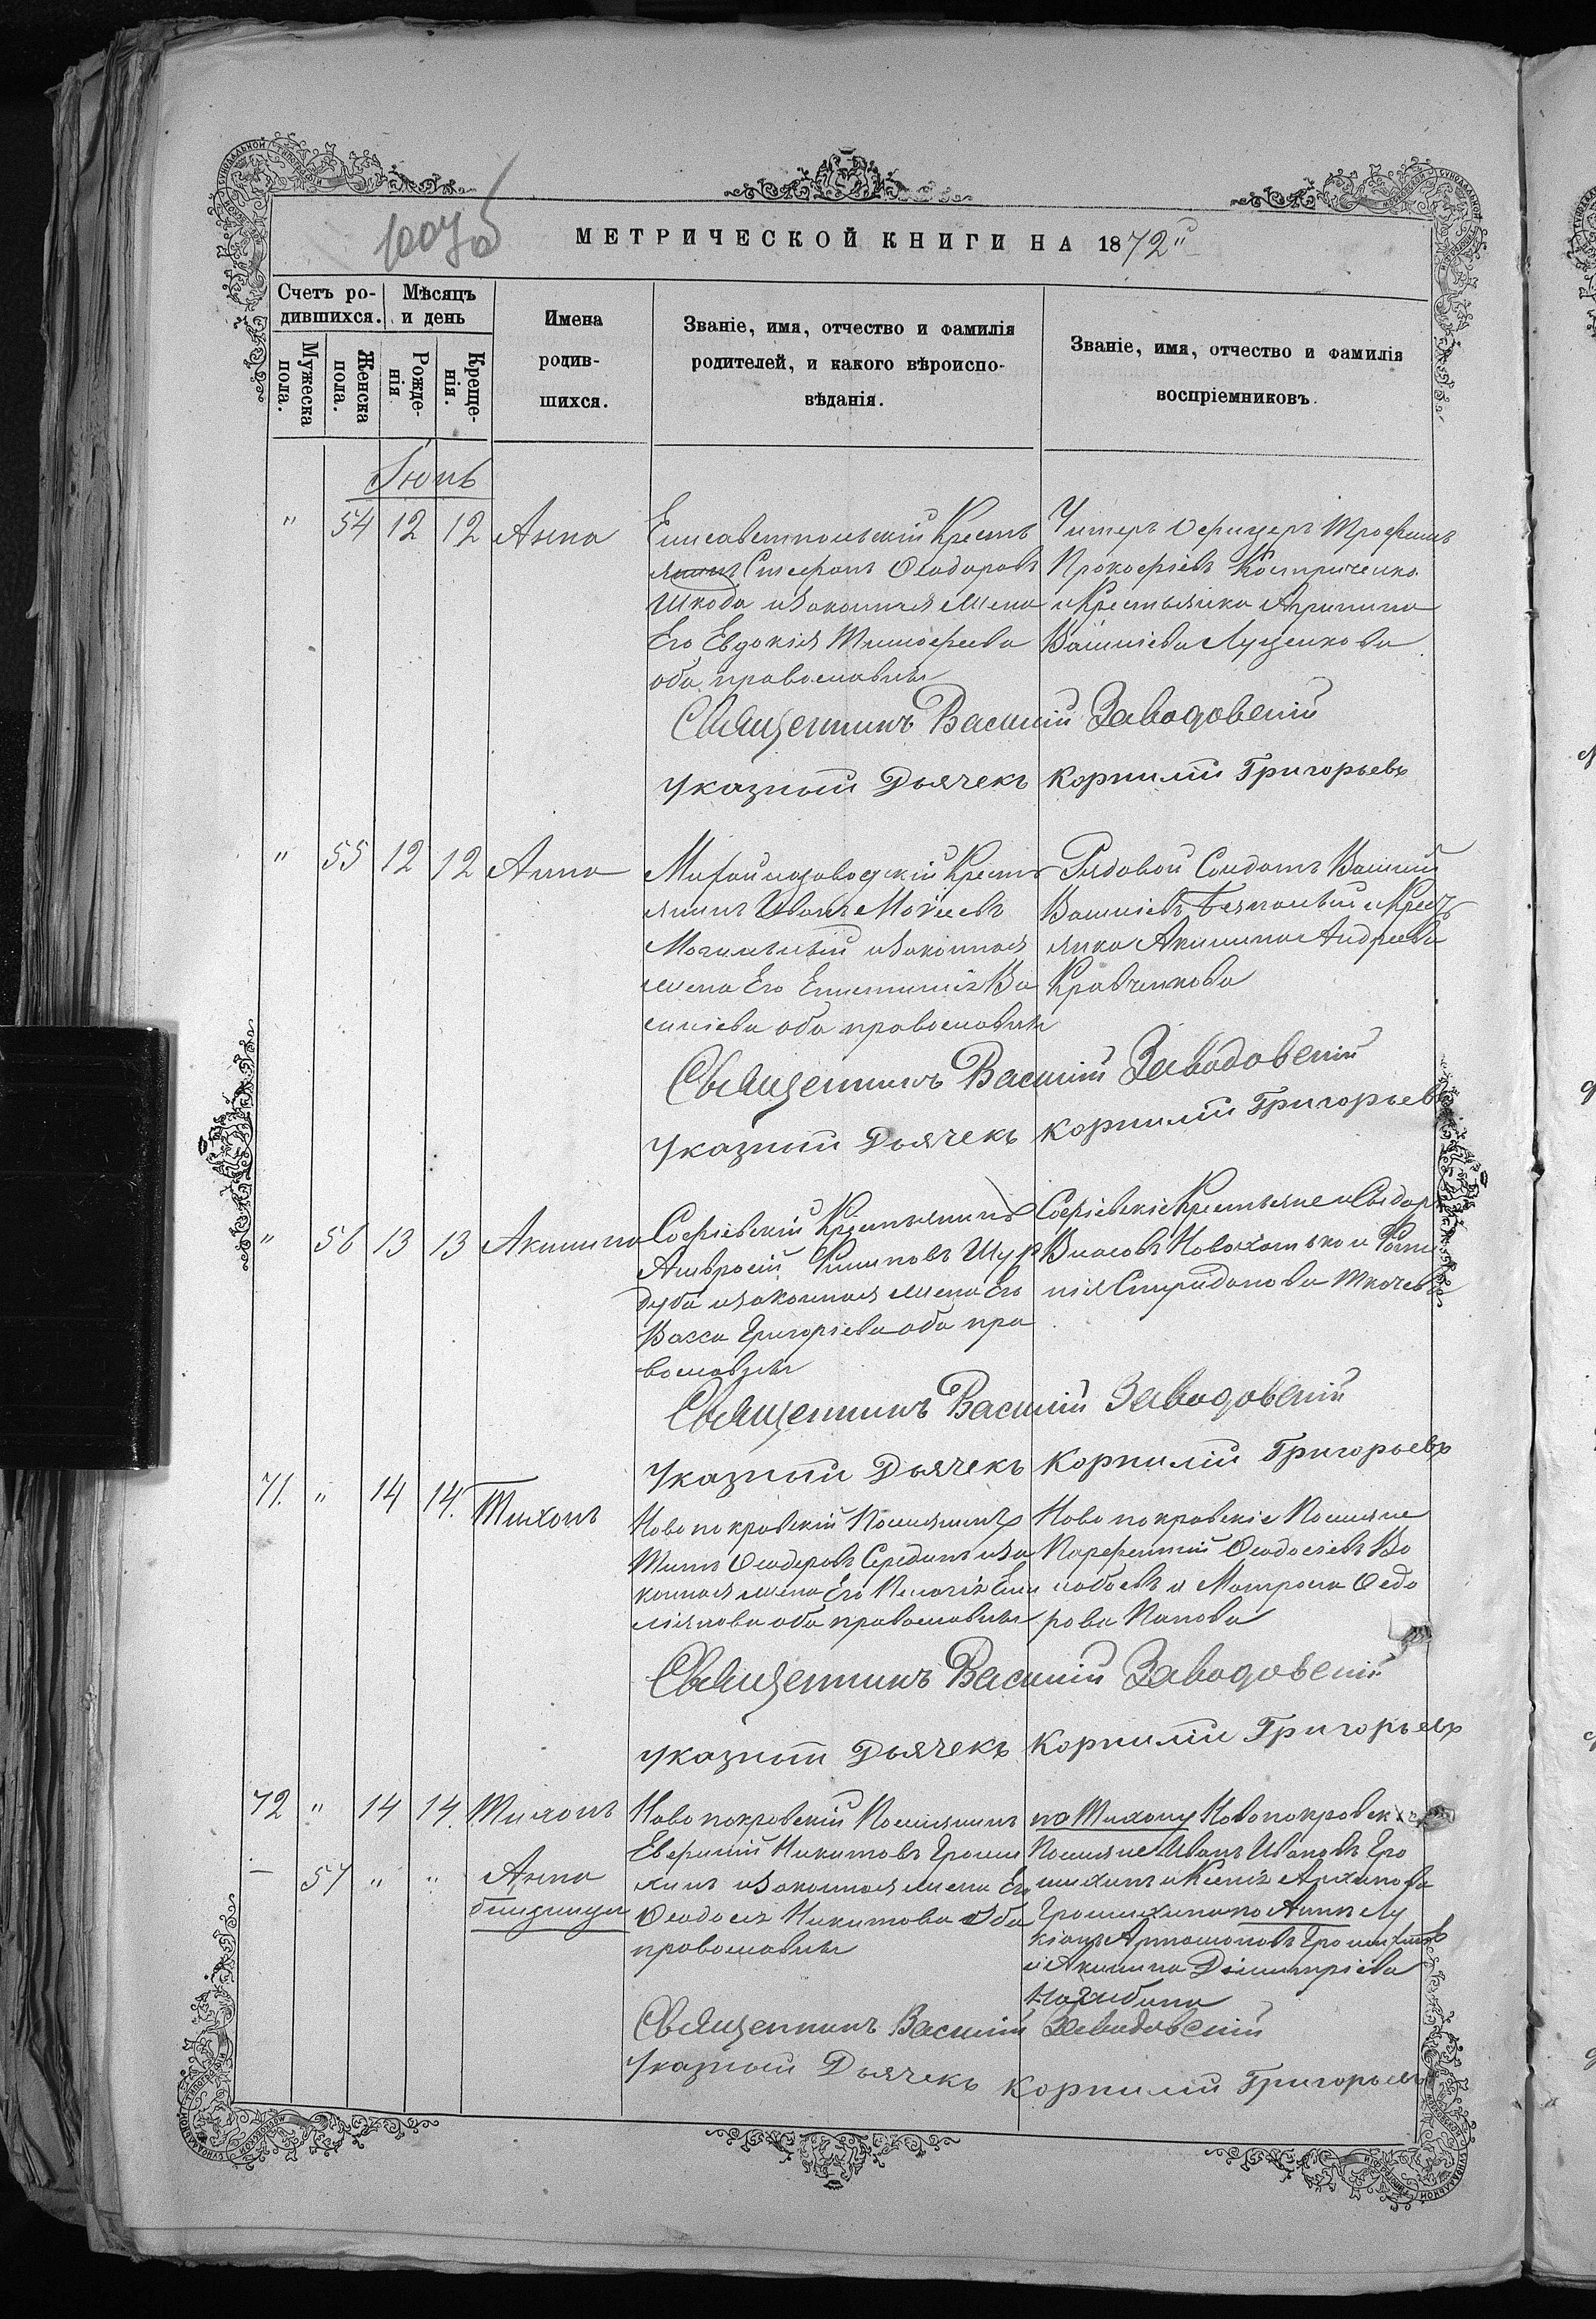 МЕТРИЧЕСКОЙ КНИГИ НА 1872й
Счетъ ро-
дившихся.
Мѣсяцъ
и день
Мужеска
пола.
Женска
пола.
Рожде-
нія
Креще-
нія.
Имена
родив-
шихся.
Званіе, имя, отчество и фамилія
родителей, и какого вѣроиспо-
вѣданія.
Званіе, имя, отчество и фамилія
воспріемниковъ.
Іюнь
" 54 12 12 Анна
Елисаветпольскій Кресть
янинъ Стефанъ Ѳеодоровъ
Шкода и законная жена
Его Евдокія Тимофеева
оба православны
Унтеръ Офицеръ Трофимъ
Прокофіевъ Костриченко
и Крестьянка Агрипина
Василіева Луценкова
Священникъ Василій Заводовскій
Указный Дьячекъ Корнилій Григорьевъ
" 55 12 12 Анна
Михайлозаводскій Кресть
янинъ Иванъ Мокіевъ
Могильный и законная
жена Его Ва
силіева оба православны
Рядовой Солдатъ Василій
Василіевъ и Крест
янка Акилина Андреева
Кравченкова
Священникъ Василій Заводовскій
Указный Дьячекъ Корнилій Григорьевъ
" 56 13 13 Акилина
Софіевскій Крестьянинъ
Амвросій Филиповъ Шур
дуба и законная жена Его
Васса Григоріева оба пра
вославны
Софіевскіе Крестьяне Сидоръ
Власовъ и
Спиридонова Ткачева
Священникъ Василій Заводовскій
Указный Дьячекъ Корнилій Григорьевъ
71. " 14 14. Тихонъ
Новопокровскій Поселянинъ
Титъ Ѳеодоровъ Середин и за
конная жена Его Пелагія Еми
ліянова оба православны
Новопокровскіе Поселяне
Парфентій Ѳеодосіевъ Во
лобоевъ и Матрона Ѳедо
рова Попова
Священникъ Василій Заводовскій
Указный Дьячекъ Корнилій Григорьевъ
72 " 14 14. Тихонъ
— 57 " " Анна
близнецы
Новопокровскій Поселянинъ
Евфимій Никитовъ Гроши
хинъ и законная жена Его
Ѳеодосія Никитова Оба
православны
по Тихону Новопокровскіе
Поселяне Иванъ Ивановъ Гро
шихинъ и Ксенія Архипова
Грошихина по Аннѣ Лу
кіанъ Артамоновъ Грошихинъ
и Акилина Димитріева
Священникъ Василій Заводовскій
Указный Дьячекъ Корнилій Григорьевъ